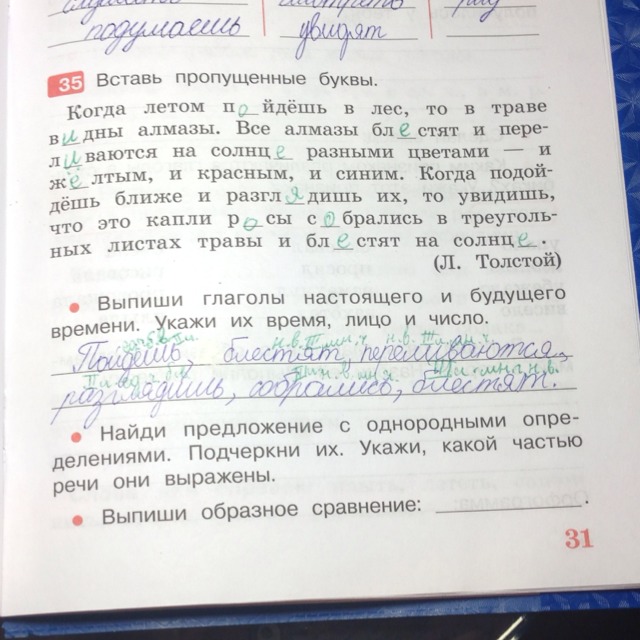 подумаешь увидят
35 Вставь пропущенные буквы.
Когда летом пойдёшь в лес, то в траве
видны алмазы. Все алмазы блестят и пере-
ливаются на солнце разными цветами — и
жёлтым, и красным, и синим. Когда подой-
дёшь ближе и разглядишь их, то увидишь,
что это капли росы собрались в треуголь-
ных листах травы и блестят на солнце.
(Л. Толстой)
• Выпиши глаголы настоящего и будущего
времени. Укажи их время, лицо и число.
н.в. н.в.
Пойдешь, блестят переливаются,
н.в. н.в.
разглядишь, собрались, блестят.
• Найди предложение с однородными опре-
делениями. Подчеркни их. Укажи, какой частью
речи они выражены.
• Выпиши образное сравнение: .
31